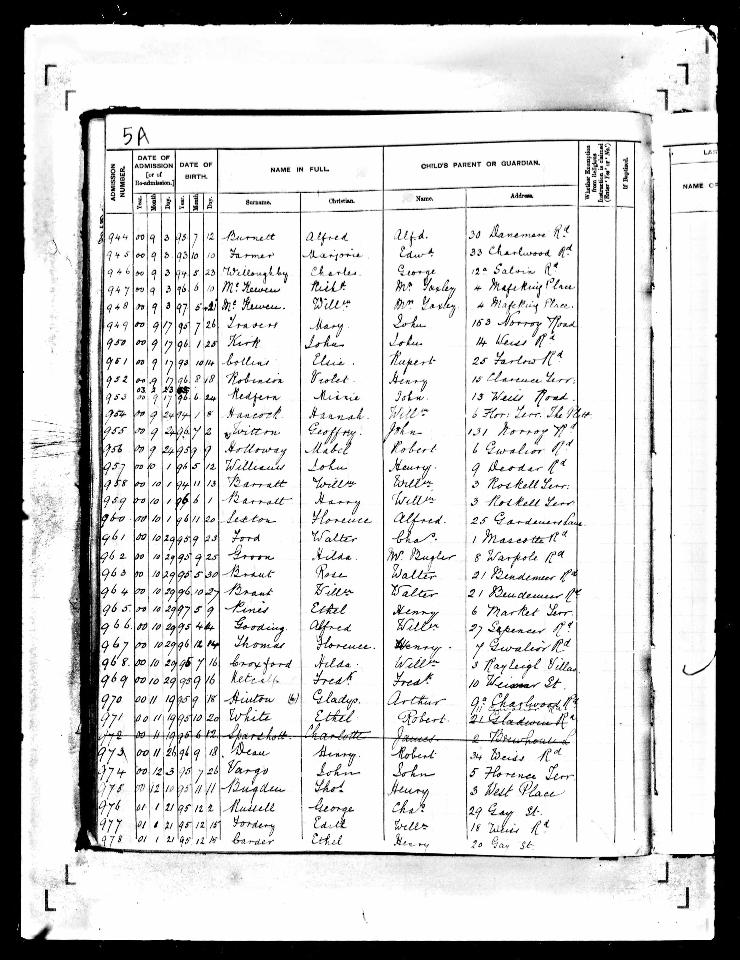 5A
ADMISSION NUMBER.
DATE OF ADMISSION [or of Re-admission.]
DATE OF BIRTH.
NAME IN FULL.
CHILD'S PARENT OR GUARDIAN.
Whether Exemption from Religious Instruction is claimed (Enter "Yes" or "No")
If Baptised.
NAME OF
Year. Month Day. Year. Month Day. Surname. Christian. Name. Address.
944 00 9 3 95 7 12 Burnett Alfred Alfd. 30 Danemere Rd
945 00 9 3 93 10 10 Farmer Marjorie Edwd 33 Charlwood Rd
946 00 9 3 94 5 23 Willoughby Charles George 12a Salvin Rd
947 00 9 3 96 6 10 McKewen Richd Mr Yaxley 4 Mafeking Place
948 00 9 3 97 5 McKewen. Willm Mr Yaxley 4 Mafeking Place.
949 00 9 17 95 7 26 Travers Mary. John 163 Norroy Road
950 00 9 17 96 1 25 Kirk John John 14 Weiss Rd
951 00 9 17 93 10 14 Collins Elsie. Rupert 25 Farlow Rd
952 00 9 17 96 8 18 Robinson Violet. Henry 15 Clarence Terr.
953 00 9 17 96 6 24 Redfern Minnie John. 13 Weiss Road.
954 00 9 24 94 1 8 Hancock Hannah. Willm 6 Flor: Terr. The Platt
955 00 9 24 96 7 2 Witton Geoffry. John 131 Norroy Rd
956 00 9 24 95 9 9 Holloway Mabel Robert 6 Gwalior Rd
957 00 10 1 96 5 12 Williams John Henry. 9 Deodar Rd
958 00 10 1 94 11 13 Barratt Willm Willm 3 Roskell Terr.
959 00 10 1 96 6 1 Barratt Harry Willm 3 Roskell Terr.
960 00 10 1 96 11 20 Sexton Florence Alfred. 25 Gardeners Lane
961 00 10 29 95 9 23 Ford Walter Chas. 1 Mascotte Rd
962 00 10 29 95 9 25 Groon Hilda. Mr Bugler 8 Warpole Rd
963 00 10 29 95 5 30 Braut Rose Walter 21 Bendemeer Rd
964 00 10 29 96 10 27 Braut Willm Walter 21 Bendemeer Rd
965 00 10 29 97 5 9 Pines Ethel Henry 6 Market Terr.
966 00 10 29 95 4 Gooding Alfred Willm 27 Spencer Rd
967 00 10 29 96 12 14 Thomas Florence. Henry. 7 Gwalior Rd
968 00 10 29 95 7 16 Croxford Hilda. Willm 3 Rayleigh Villas
969 00 10 29 95 9 16 Metcalf Fredk Fredk 10 Weimar St.
970 00 11 19 95 9 18 Hinton Gladys. Arthur 9a Charlwood Rd
971 00 11 19 95 10 20 White Ethel Robert 21 Gladwin Rd
972 00 11 19 95 6 12 Sparshott Charlotte James 2
973 00 11 26 96 9 18 Dean Henry. Robert 34 Weiss Rd
974 00 12 3 95 7 26 Vargo John John 5 Florence Terr
975 00 12 10 95 11 11 Bugden Thos Henry 3 West Place
976 01 1 21 95 12 2 Russell George Chas. 29 Gay St.
977 01 1 21 95 12 15 Fordery Edith Willm 18 Weiss Rd
978 01 1 21 95 12 15 Carder Ethel Henry 20 Gay St.